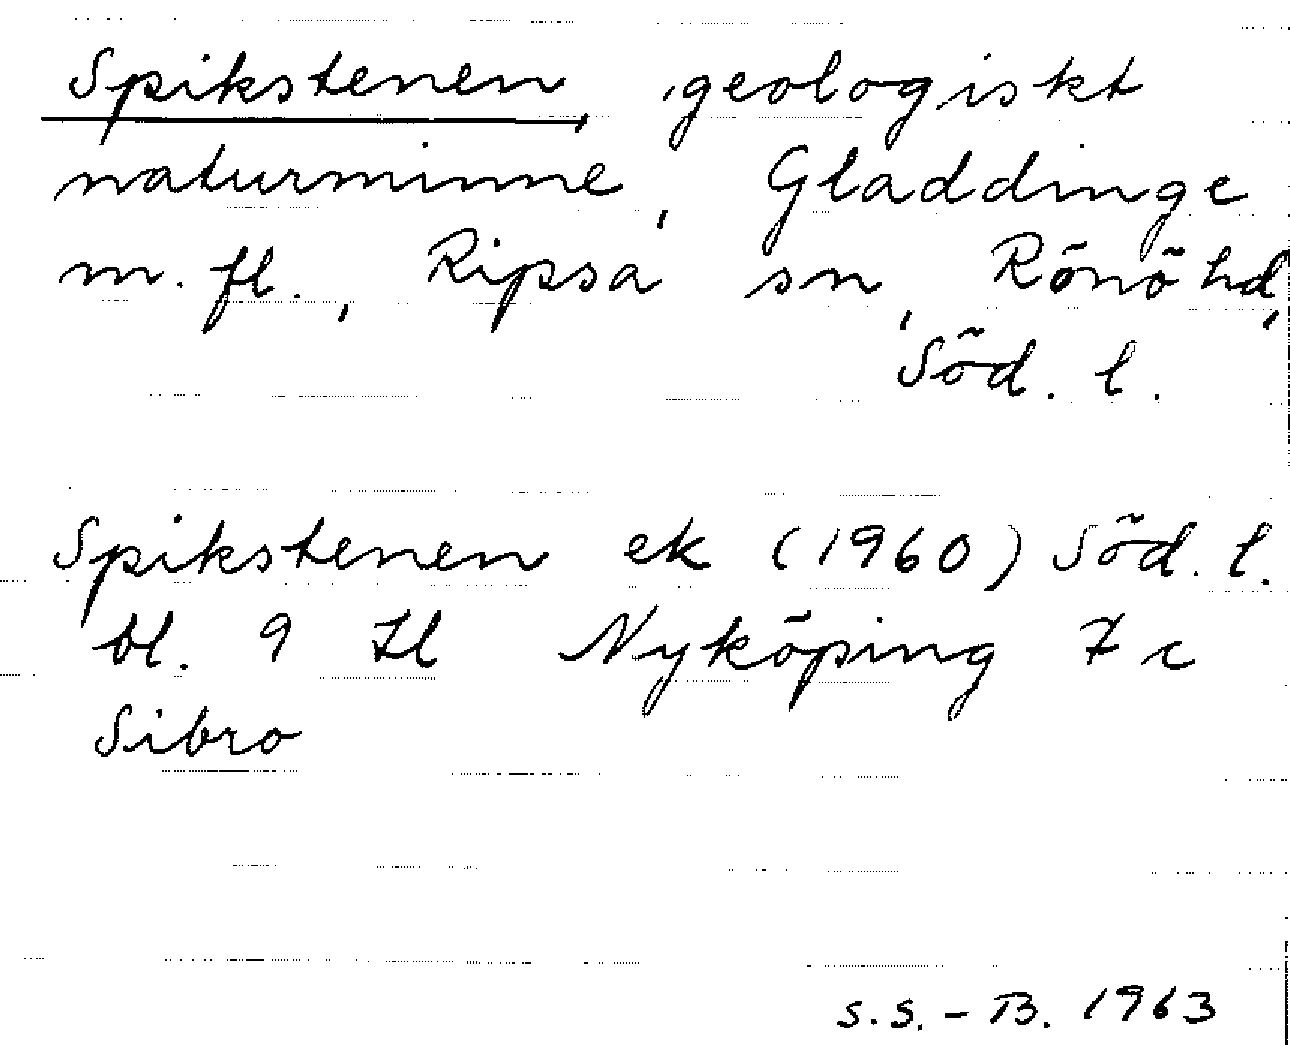 Spikstenen, geologiskt
naturminne, Gladdinge
m. fl., Ripsa sn, Rönö hd,
Söd. l.
Spikstenen ek (1960) Söd. l.
bl. 9 Nyköping 7 c
Sibro
S.S. - B. 1963